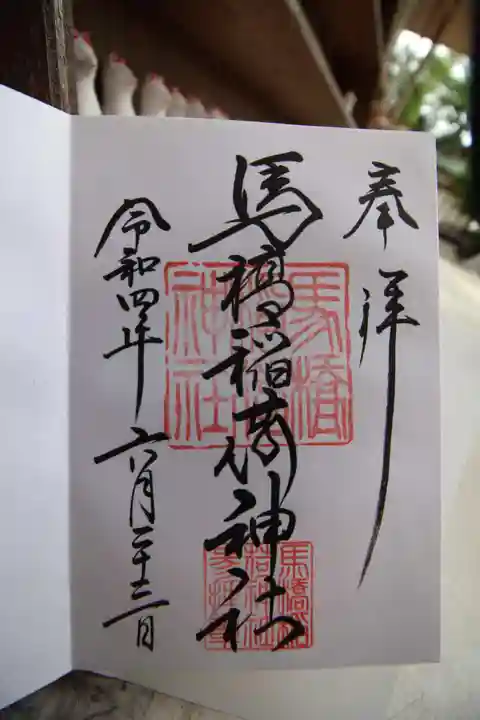 奉拝
馬橋稲荷神社
令和四年 六月二十三日
馬橋
神社